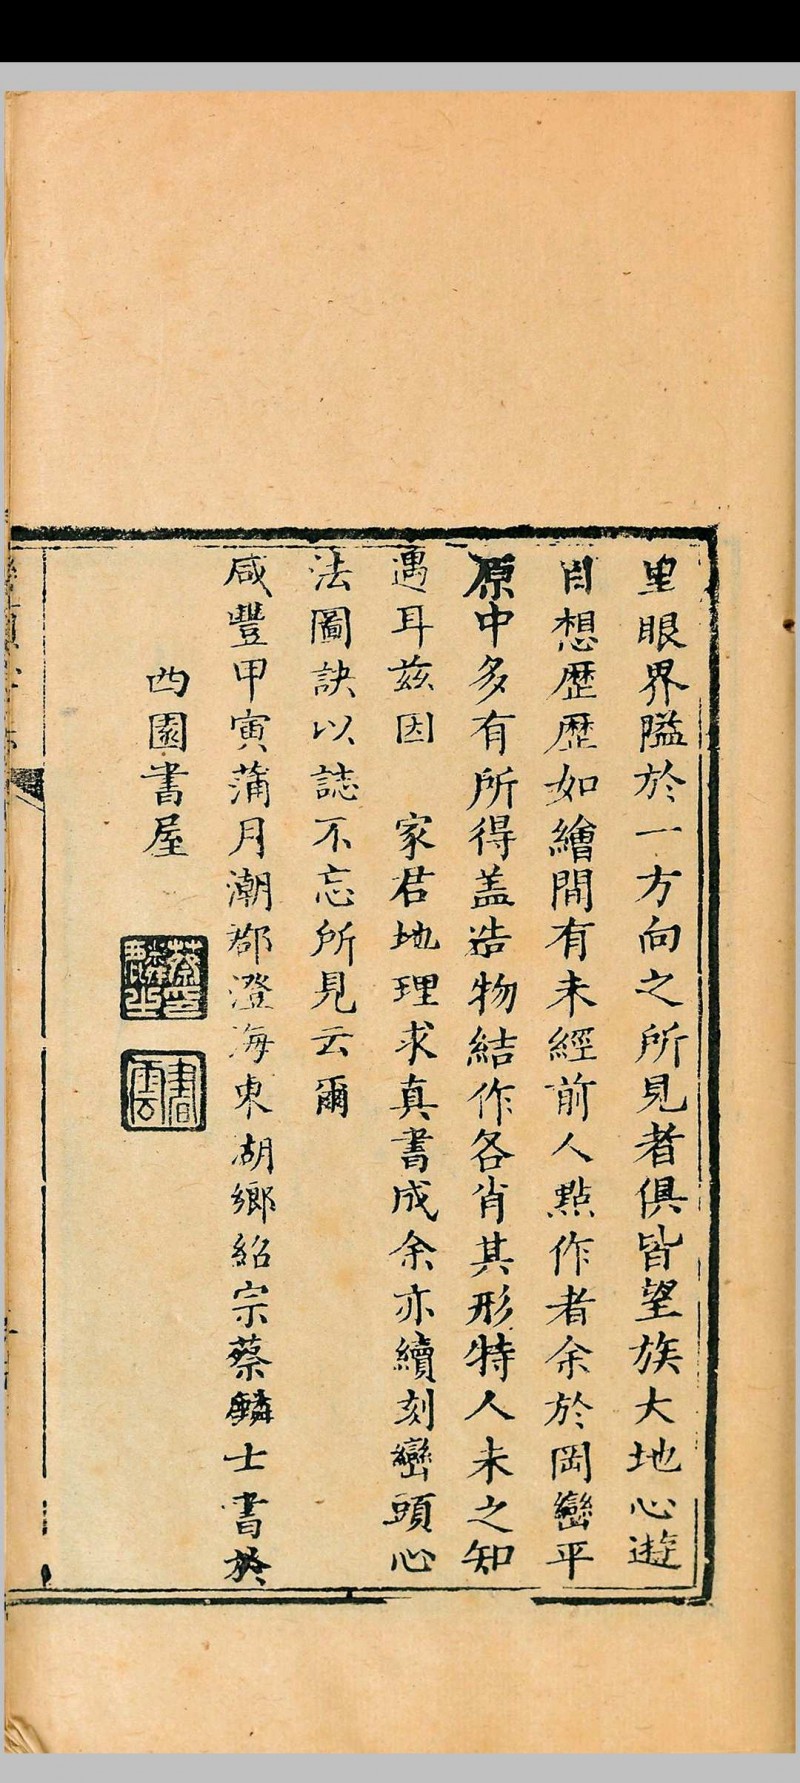 里眼界隘於一方向之所見者俱皆望族大地心遊
目想歷歷如繪間有未經前人點作者余於岡巒平
原中多有所得蓋造物結作各肖其形特人未之知
遇耳茲因　家君地理求真書成余亦續刻巒頭心
法圖訣以誌不忘所見云爾
咸豐甲寅蒲月潮郡澄海東湖鄉紹宗蔡麟士書於
西園書屋
蔡印
麟士
書雲